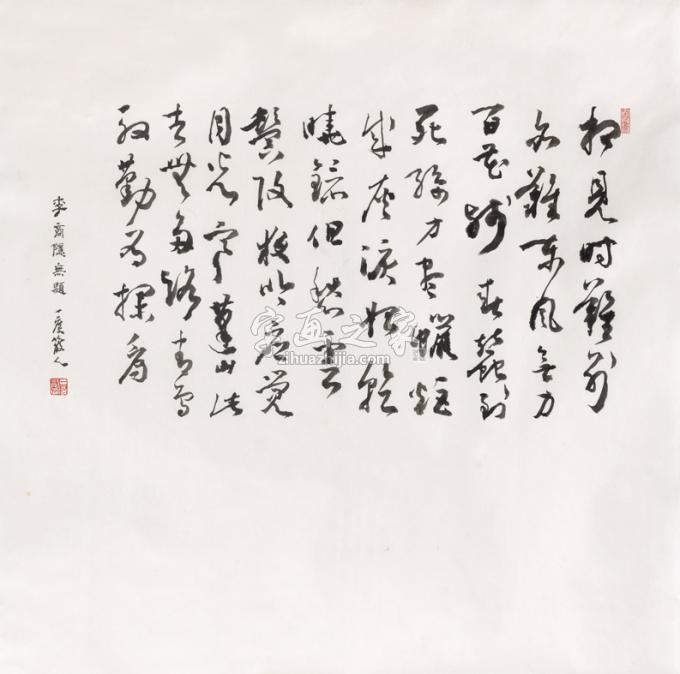 相見時難別
亦難東風無力
百花殘春蠶到
死絲方盡蠟炬
成灰淚始乾
曉鏡但愁雲
鬢改夜吟應覺
月光寒蓬山此
去無多路青鳥
殷勤為探看
李商隱無題 一人
字画之家
zihuazhijia.com